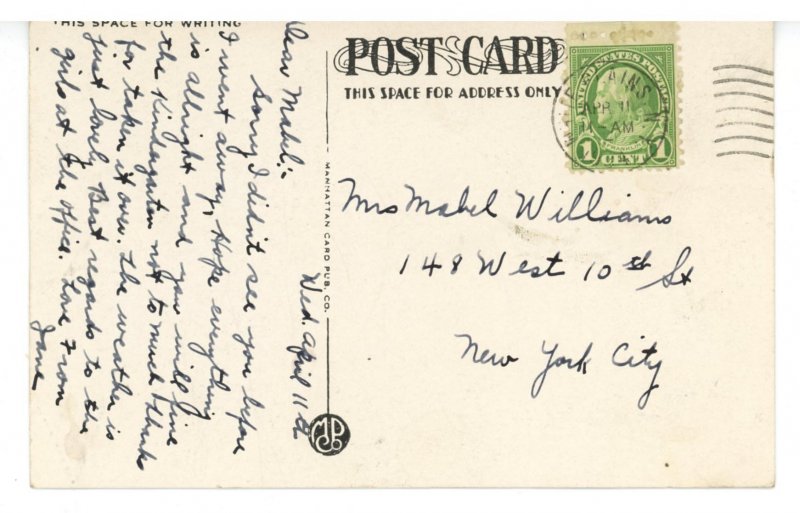 THIS SPACE FOR WRITING
Wed. April 11th
Dear Mabel:-
Sorry I didn't see you before
I went away, Hope everything
is allright and you will fine
the Kindergarten not to much thanks
for taken it over. The weather is
just lovely. Best regards to the
girls at the office. Love From
Jane
MANHATTAN CARD PUB. CO.
POST CARD
THIS SPACE FOR ADDRESS ONLY
UNITED STATES POSTAGE
FRANKLIN
1 CENT 1
PLAINS N.Y.
APR 11
AM
Mrs Mabel Williams
148 West 10th St
New York City